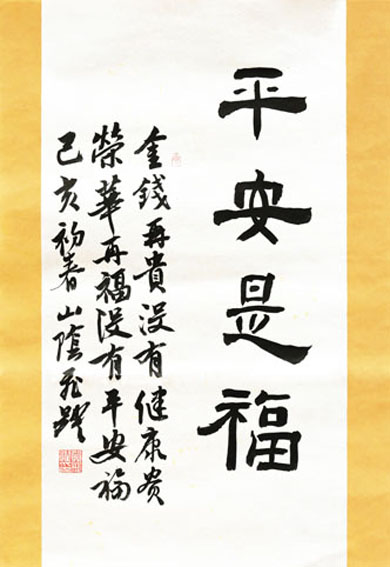 平安是福
金錢再貴没有健康贵
榮華再福没有平安福
己亥初春山陰